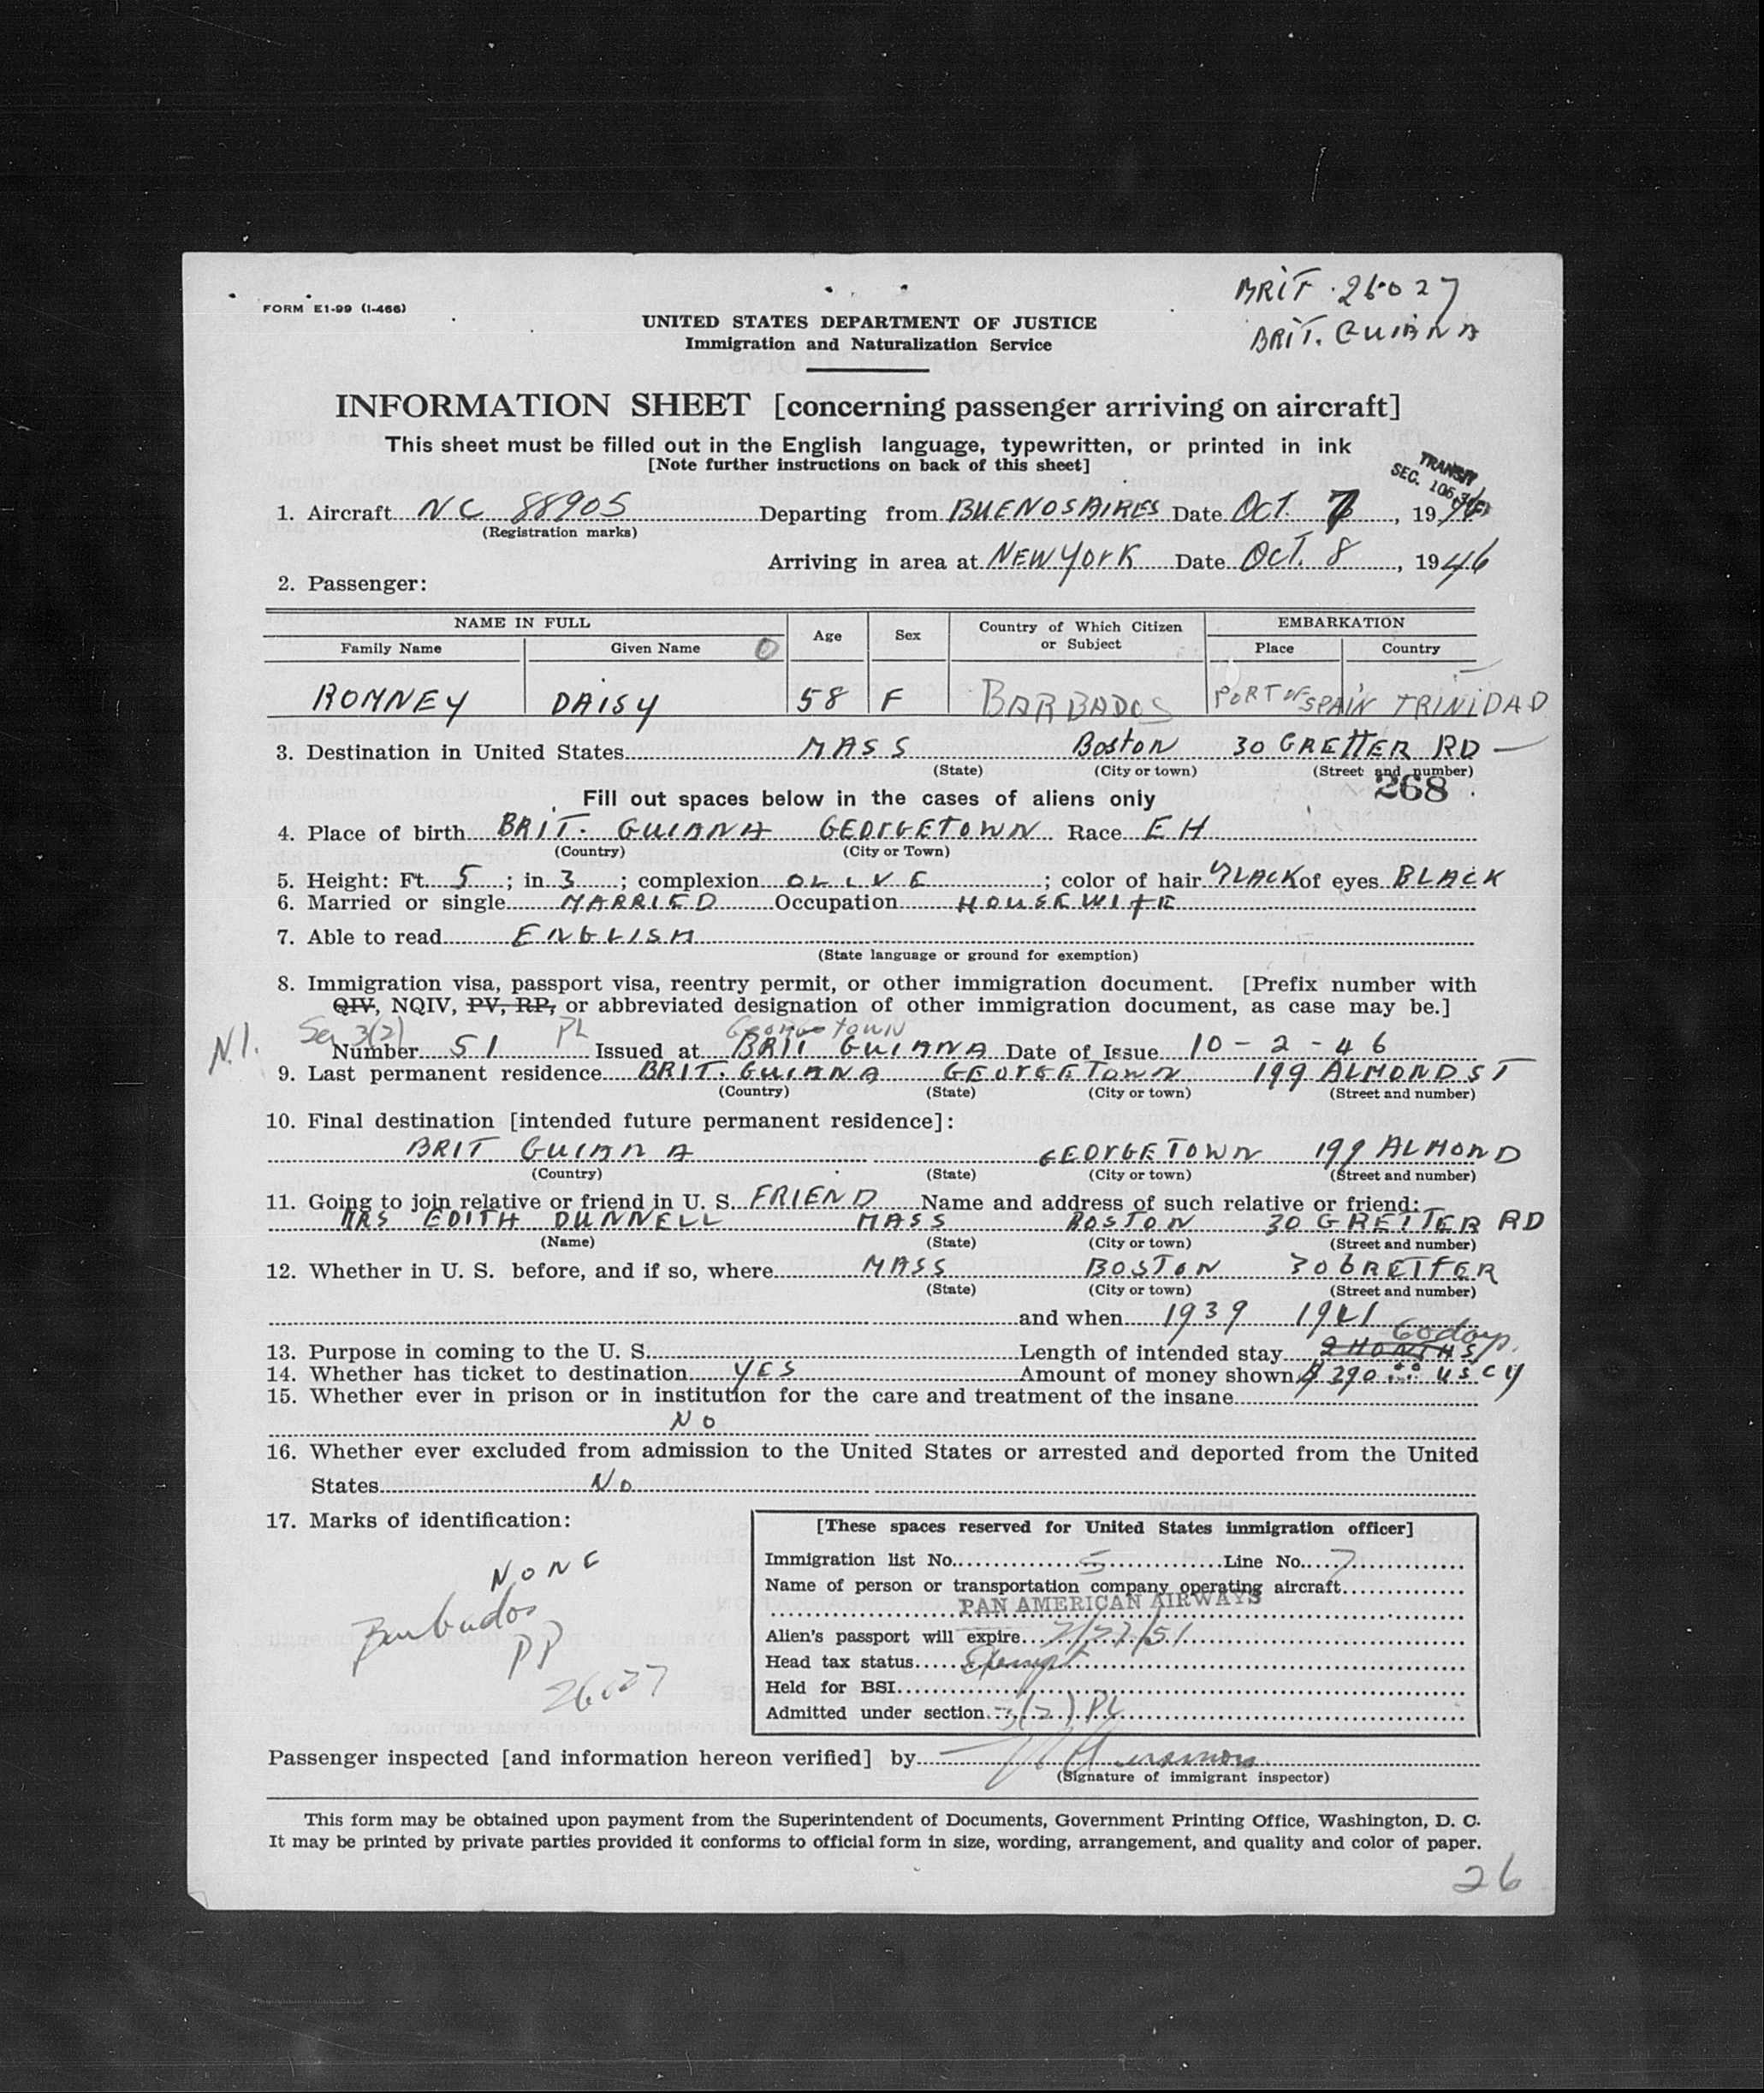 FORM E1-99 (I-466)
BRIT. 26027
BRIT. GUIANA
UNITED STATES DEPARTMENT OF JUSTICE
Immigration and Naturalization Service
INFORMATION SHEET [concerning passenger arriving on aircraft]
This sheet must be filled out in the English language, typewritten, or printed in ink
[Note further instructions on back of this sheet]
TRANSIT
SEC. 105.3(e)
1. Aircraft NC 88905 Departing from BUENOS AIRES Date OCT. 7, 1946
(Registration marks)
Arriving in area at NEW YORK Date OCT. 8, 1946
2. Passenger:
NAME IN FULL Age Sex Country of Which Citizen or Subject EMBARKATION
Family Name Given Name Place Country
ROMNEY DAISY 58 F BARBADOS PORT OF SPAIN TRINIDAD
3. Destination in United States MASS BOSTON 30 GRETTER RD
(State) (City or town) (Street and number)
268
Fill out spaces below in the cases of aliens only
4. Place of birth BRIT. GUIANA GEORGETOWN Race EH
(Country) (City or Town)
5. Height: Ft. 5; in 3; complexion OLIVE; color of hair BLACK of eyes BLACK
6. Married or single MARRIED Occupation HOUSEWIFE
7. Able to read ENGLISH
(State language or ground for exemption)
8. Immigration visa, passport visa, reentry permit, or other immigration document. [Prefix number with
QIV, NQIV, PV, RP, or abbreviated designation of other immigration document, as case may be.]
N.I. Sec 3(2) PL Georgetown
Number 51 Issued at BRIT GUIANA Date of Issue 10-2-46
9. Last permanent residence BRIT. GUIANA GEORGETOWN 199 ALMOND ST
(Country) (State) (City or town) (Street and number)
10. Final destination [intended future permanent residence]:
BRIT GUIANA GEORGETOWN 199 ALMOND
(Country) (State) (City or town) (Street and number)
11. Going to join relative or friend in U. S. FRIEND Name and address of such relative or friend:
MRS EDITH DUNNELL MASS BOSTON 30 GRETTER RD
(Name) (State) (City or town) (Street and number)
12. Whether in U. S. before, and if so, where MASS BOSTON 30 GRETTER
(State) (City or town) (Street and number)
and when 1939 1941
60 days
13. Purpose in coming to the U. S. Length of intended stay 2 MONTHS
14. Whether has ticket to destination YES Amount of money shown $ 290.00 US CY
15. Whether ever in prison or in institution for the care and treatment of the insane
NO
16. Whether ever excluded from admission to the United States or arrested and deported from the United
States No
17. Marks of identification:
NONE
Barbados
PP
26027
[These spaces reserved for United States immigration officer]
Immigration list No. 5 Line No. 7
Name of person or transportation company operating aircraft
PAN AMERICAN AIRWAYS
Alien's passport will expire 7/27/51
Head tax status Exempt
Held for BSI
Admitted under section 3(2) PL
Passenger inspected [and information hereon verified] by
(Signature of immigrant inspector)
This form may be obtained upon payment from the Superintendent of Documents, Government Printing Office, Washington, D. C.
It may be printed by private parties provided it conforms to official form in size, wording, arrangement, and quality and color of paper.
26